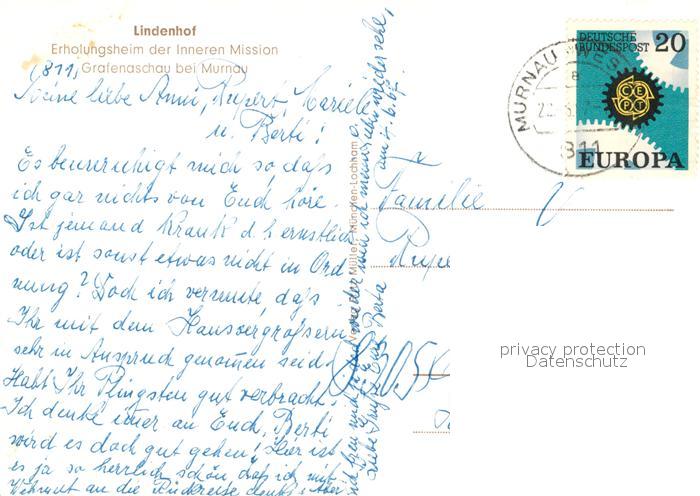 Lindenhof
Erholungsheim der Inneren Mission
(811) Grafenaschau bei Murnau
Meine liebe Anni, Rupert, Mariele
u. Berti!
Es beunruhigt mich so, daß
ich gar nichts von Euch höre.
Ist jemand krank d. h. ernstlich
oder ist sonst etwas nicht in Ord
nung? Doch ich vermute, daß
Ihr mit dem Hausvergrößern
sehr in Anspruch genomen seid.
Habt Ihr Pfingsten gut verbracht.
Ich denke imer an Euch, Berti
wird es doch gut gehen! Hier ist
es ja so herrlich schön, daß ich mit
Wehmut an die Rückreise denke. Aber
wieder
am 4.6.67
Liebe Grüße Eure Berta
Müller, München-Lochham
DEUTSCHE
BUNDESPOST 20
CEPT
EUROPA
MURNAU
811
Familie V
Rupe
privacy protection
Datenschutz